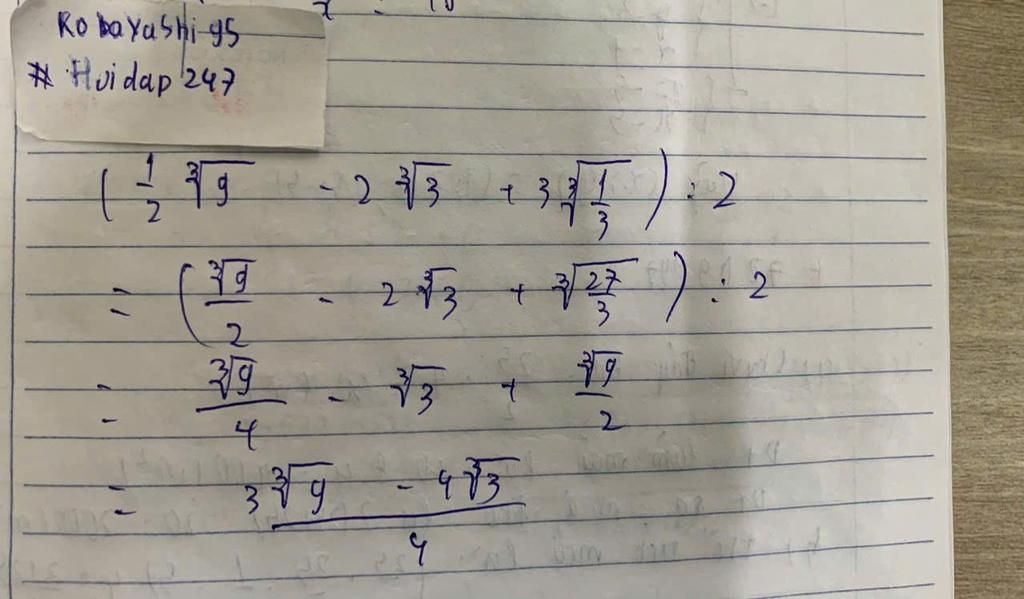 Kobayashi 95
# Hoidap 247
( 1/2 ∛9 - 2 ∛3 + 3 ∛(1/3) ) : 2
= ( ∛9/2 - 2 ∛3 + ∛(27/3) ) : 2
= ∛9/4 - ∛3 + ∛9/2
= (3 ∛9 - 4 ∛3)/4